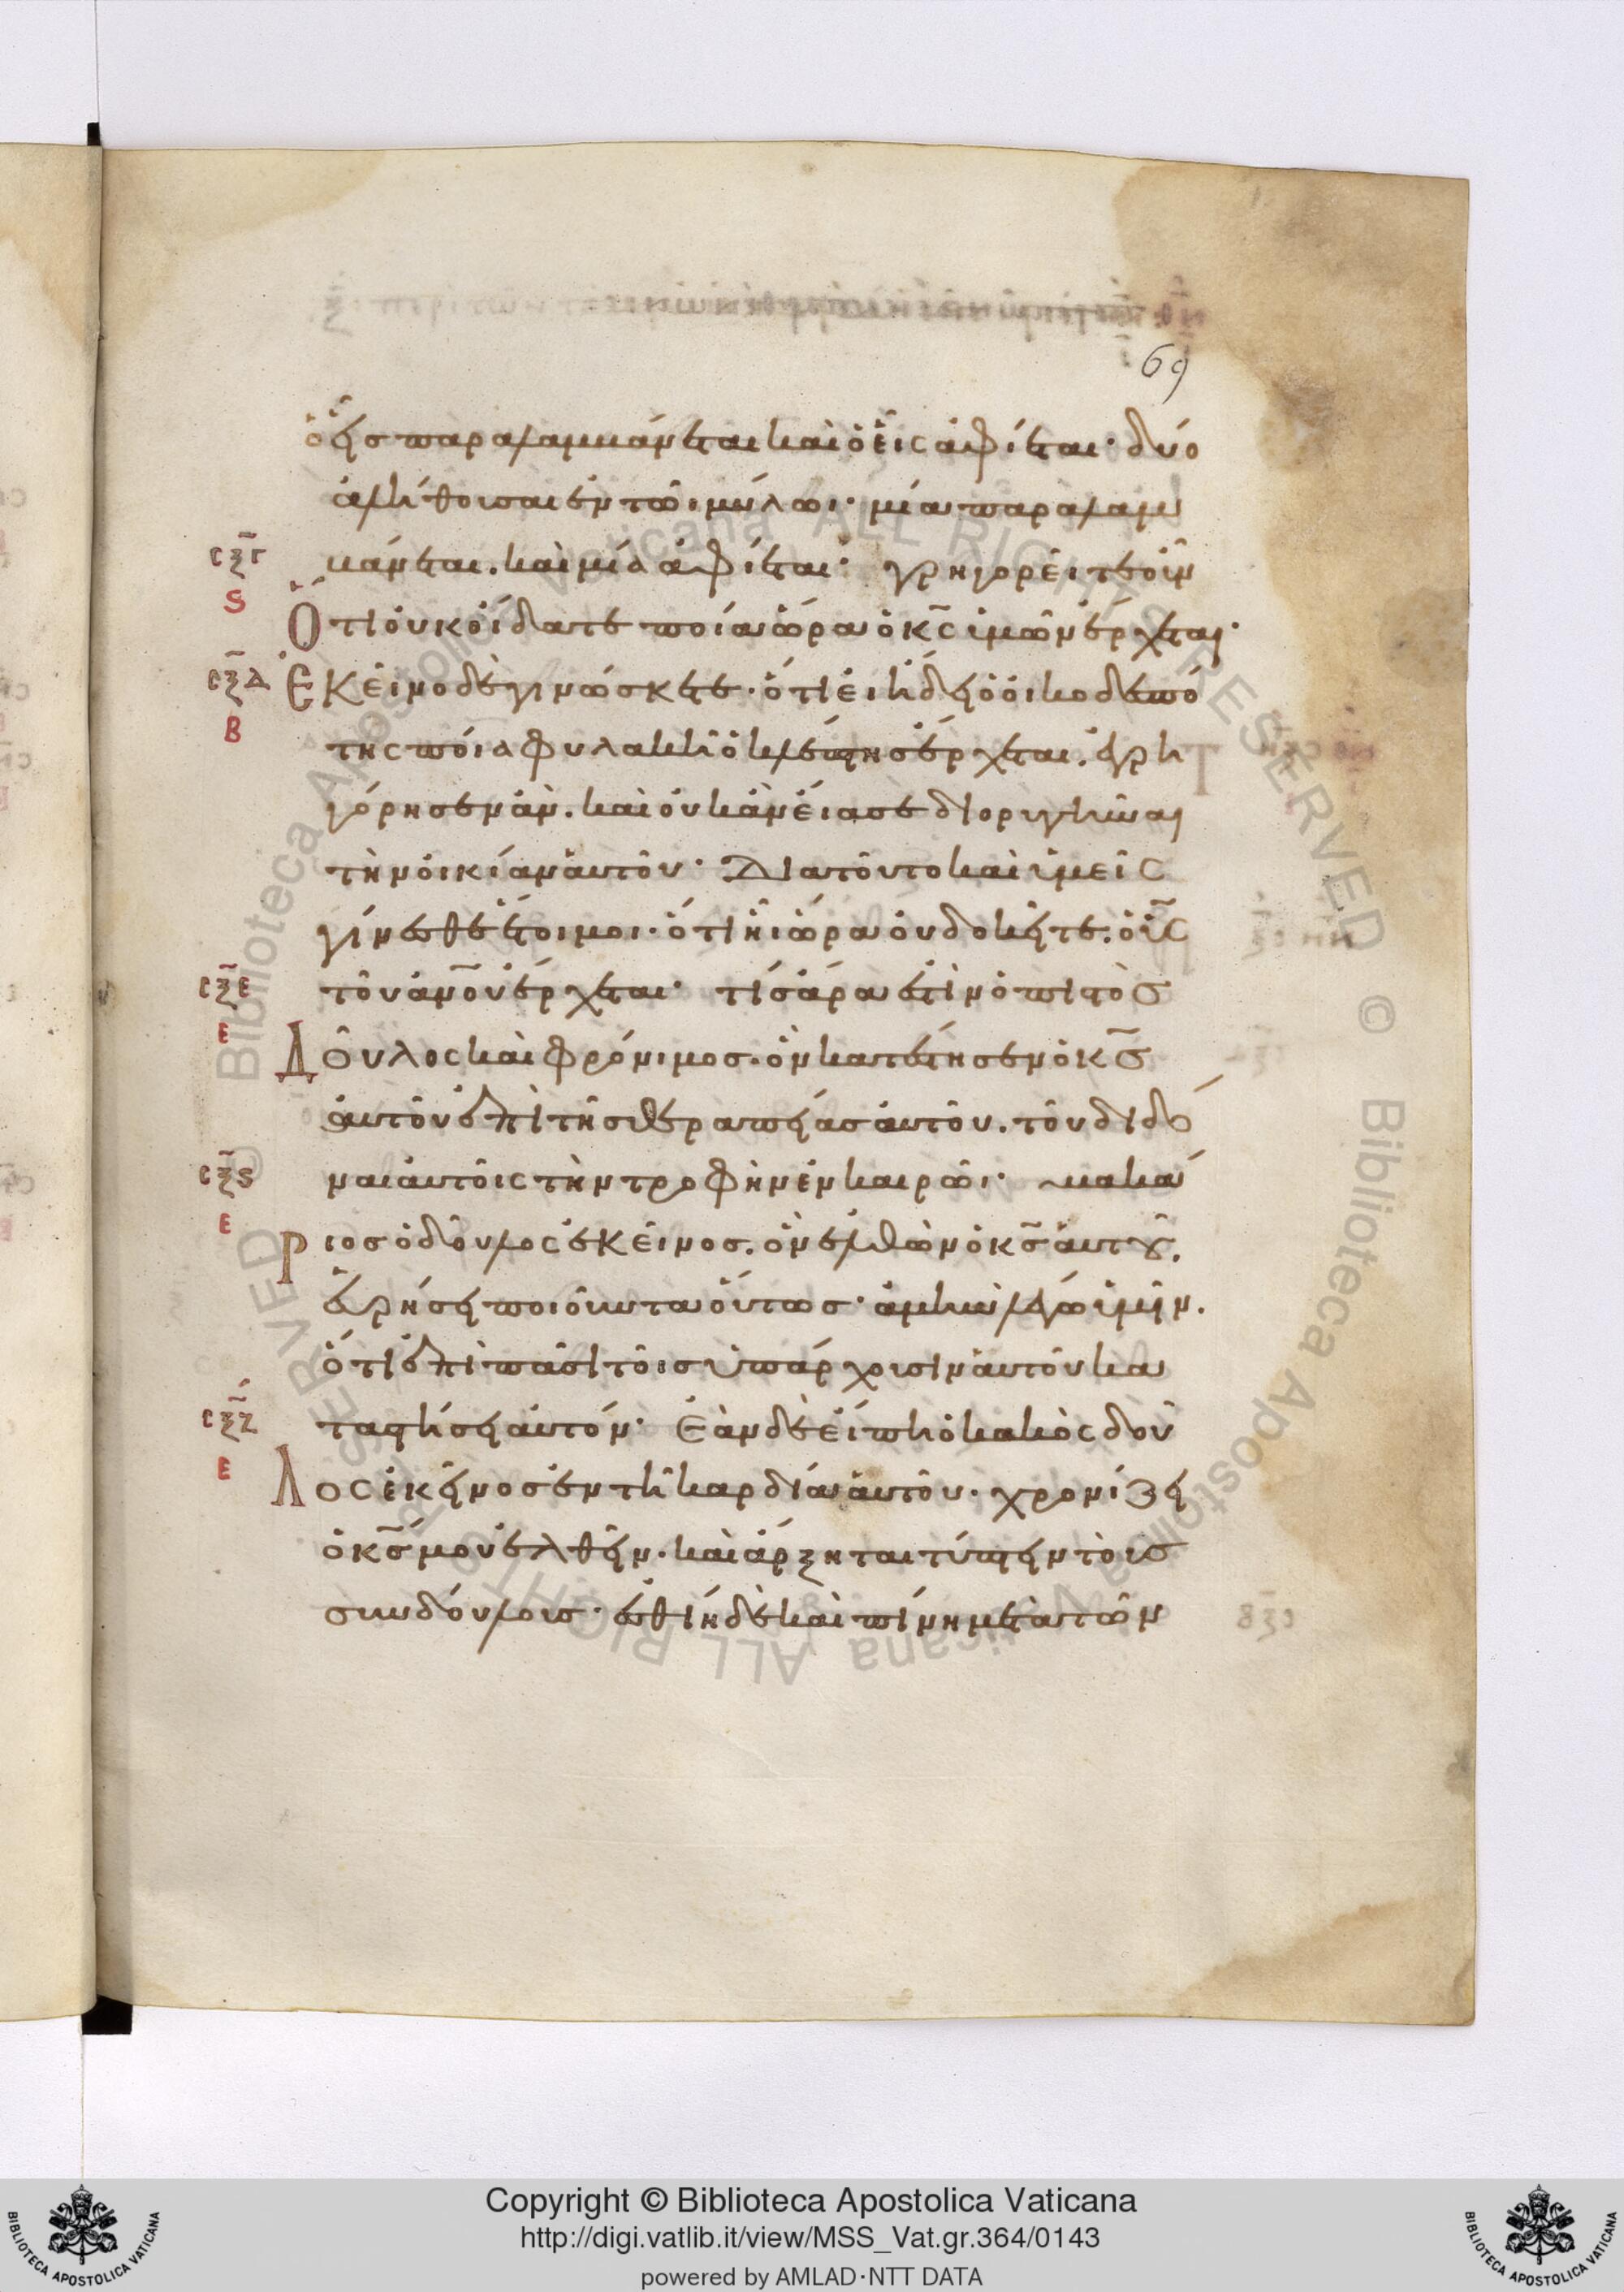 69
ὁ εἷς παραλαμβάνεται καὶ ὁ εἷς ἀφίεται· δύο
ἀλήθουσαι ἐν τῶι μύλωι· μία παραλαμ
βάνεται. καὶ μία ἀφίεται· γρηγορεῖτε οὖν
σξγ
ς
Ὅτι οὐκ οἴδατε ποία ὥρα ὁ κ̅ς̅ ὑμῶν ἔρχεται·
σξδ
β
Ἐκεῖνο δὲ γινώσκετε· ὅτι εἰ ἤδει ὁ οἰκοδεσπό
της ποία φυλακῆ ὁ κλέπτης ἔρχεται. ἐγρη
γόρησεν ἄν. καὶ οὐκ ἂν εἴασε διορυγῆναι
τὴν οἰκίαν αὐτοῦ· Διατοῦτο καὶ ὑμεῖς
γίνεσθε ἕτοιμοι· ὅτι ἧι ὥρα οὐ δοκεῖτε. ὁ υ̅ς̅
τοῦ α̅ν̅ο̅υ̅ ἔρχεται· τίς ἄρα ἐστὶν ὁ πιστὸς
σξε
ε
Δοῦλος καὶ φρόνιμος. ὃν κατέστησεν ὁ κ̅ς̅
αὐτοῦ ἐπὶ τῆς θεραπείας αὐτοῦ. τοῦ διδό
ναι αὐτοῖς τὴν τροφὴν ἐν καιρῶι· μακά
σξς
ε
Ριος ὁ δοῦλος ἐκεῖνος. ὃν ἐλθὼν ὁ κ̅ς̅ αὐτοῦ.
εὑρήσει ποιοῦντα οὕτως· ἀμὴν λέγω ὑμῖν.
ὅτι ἐπὶ πᾶσι τοῖς ὑπάρχουσιν αὐτοῦ κα
ταστήσει αὐτόν· Ἐὰν δὲ εἴπη ὁ κακὸς δοῦ
σξζ
ε
Λος ἐκεῖνος ἐν τῆ καρδία αὐτοῦ. χρονίζει
ὁ κ̅ς̅ μου ἐλθεῖν. καὶ ἄρξηται τύπτειν τοὺς
συνδούλους· ἐσθίη δὲ καὶ πίνη μετὰ τῶν
Copyright © Biblioteca Apostolica Vaticana
http://digi.vatlib.it/view/MSS_Vat.gr.364/0143
powered by AMLAD·NTT DATA